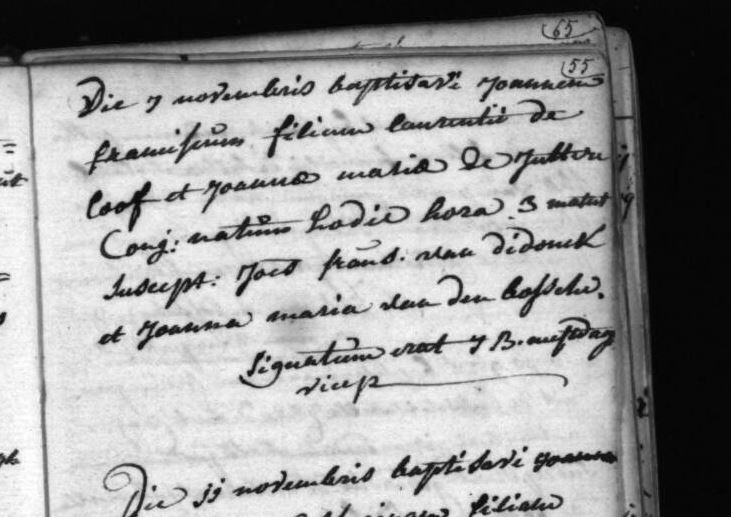 65
55
Die 7 novembris baptisavi Joannem
franciscum filium laurentii de
Coof et Joannæ mariæ De Jutter
Conj: natum hodie hora 3 matut
suscept: Joes frans: van didonck
et Joanna maria van den bossche.
signatum erat J B.
vicep
Die 11 novembris baptisavi
filiam